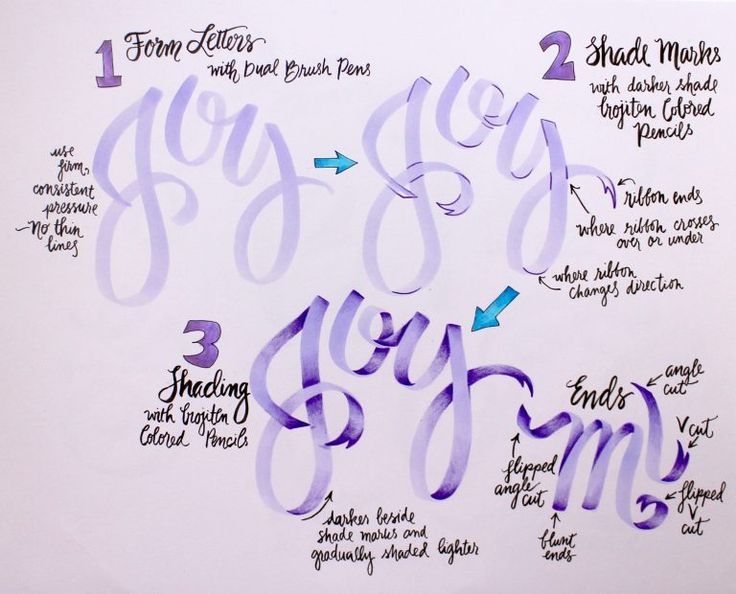 1 Form Letters
with Dual Brush Pens
use
firm,
consistent
pressure
~No thin
lines
Joy
2 Shade Marks
with darker shade
Irojiten Colored
Pencils
Joy
ribbon ends
where ribbon crosses
over or under
where ribbon
changes direction
3
Shading
with Irojiten
Colored Pencils
Joy
darker beside
shade marks and
gradually shaded lighter
Ends
angle
cut
V cut
flipped
V
cut
flipped
angle
cut
blunt
ends
m